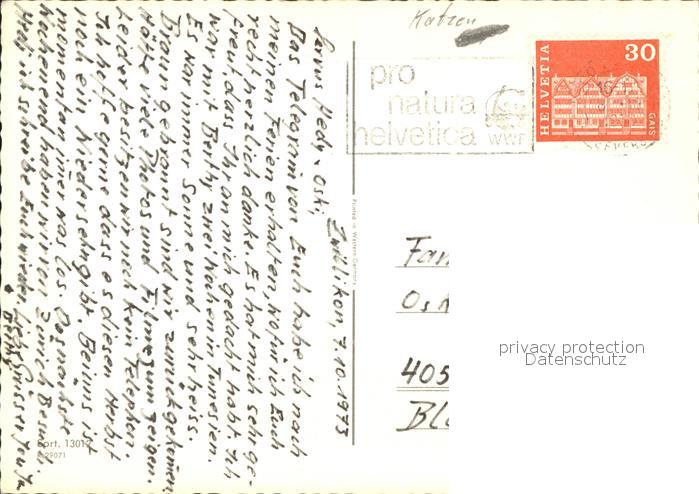 Katzen
pro
natura
helvetica
WWF
HELVETIA
30
GAIS
Zollikon, 7.10.1973
Servus Hedy + Oski,
Das Telegram von Euch habe ich nach
meinen Ferien erhalten, wofür ich Euch
recht herzlich danke. Es hat mich sehr ge-
freut dass Ihr an mich gedacht habt. Ich
war mit Berthy zwei Wochen in Tunesien.
Es war immer Sonne und sehr heiss.
Braun gebrannt sind wir zurückgekommen.
Hätte viele Photos und Filme zum zeigen.
Leider besitzen wir noch kein Telephon.
Ich hoffe gerne dass es diesen Herbst
noch ein Wiedersehn gibt. Bei uns ist
momentan immer was los. Das nächste
Wochenend haben wir von Zürich Besuch.
Hedi ich schreibe Euch wieder. Liebe Grüsse
Printed in Western Germany
Fam
Osk
405
Blu
privacy protection
Datenschutz
Sort. 13012
29071